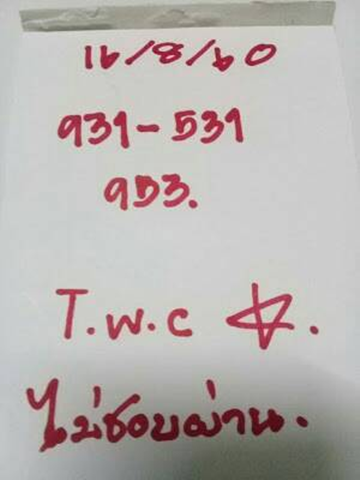 16/8/60
931-531
953.
T.W.C ☆.
ไม่ชอบผ่าน.